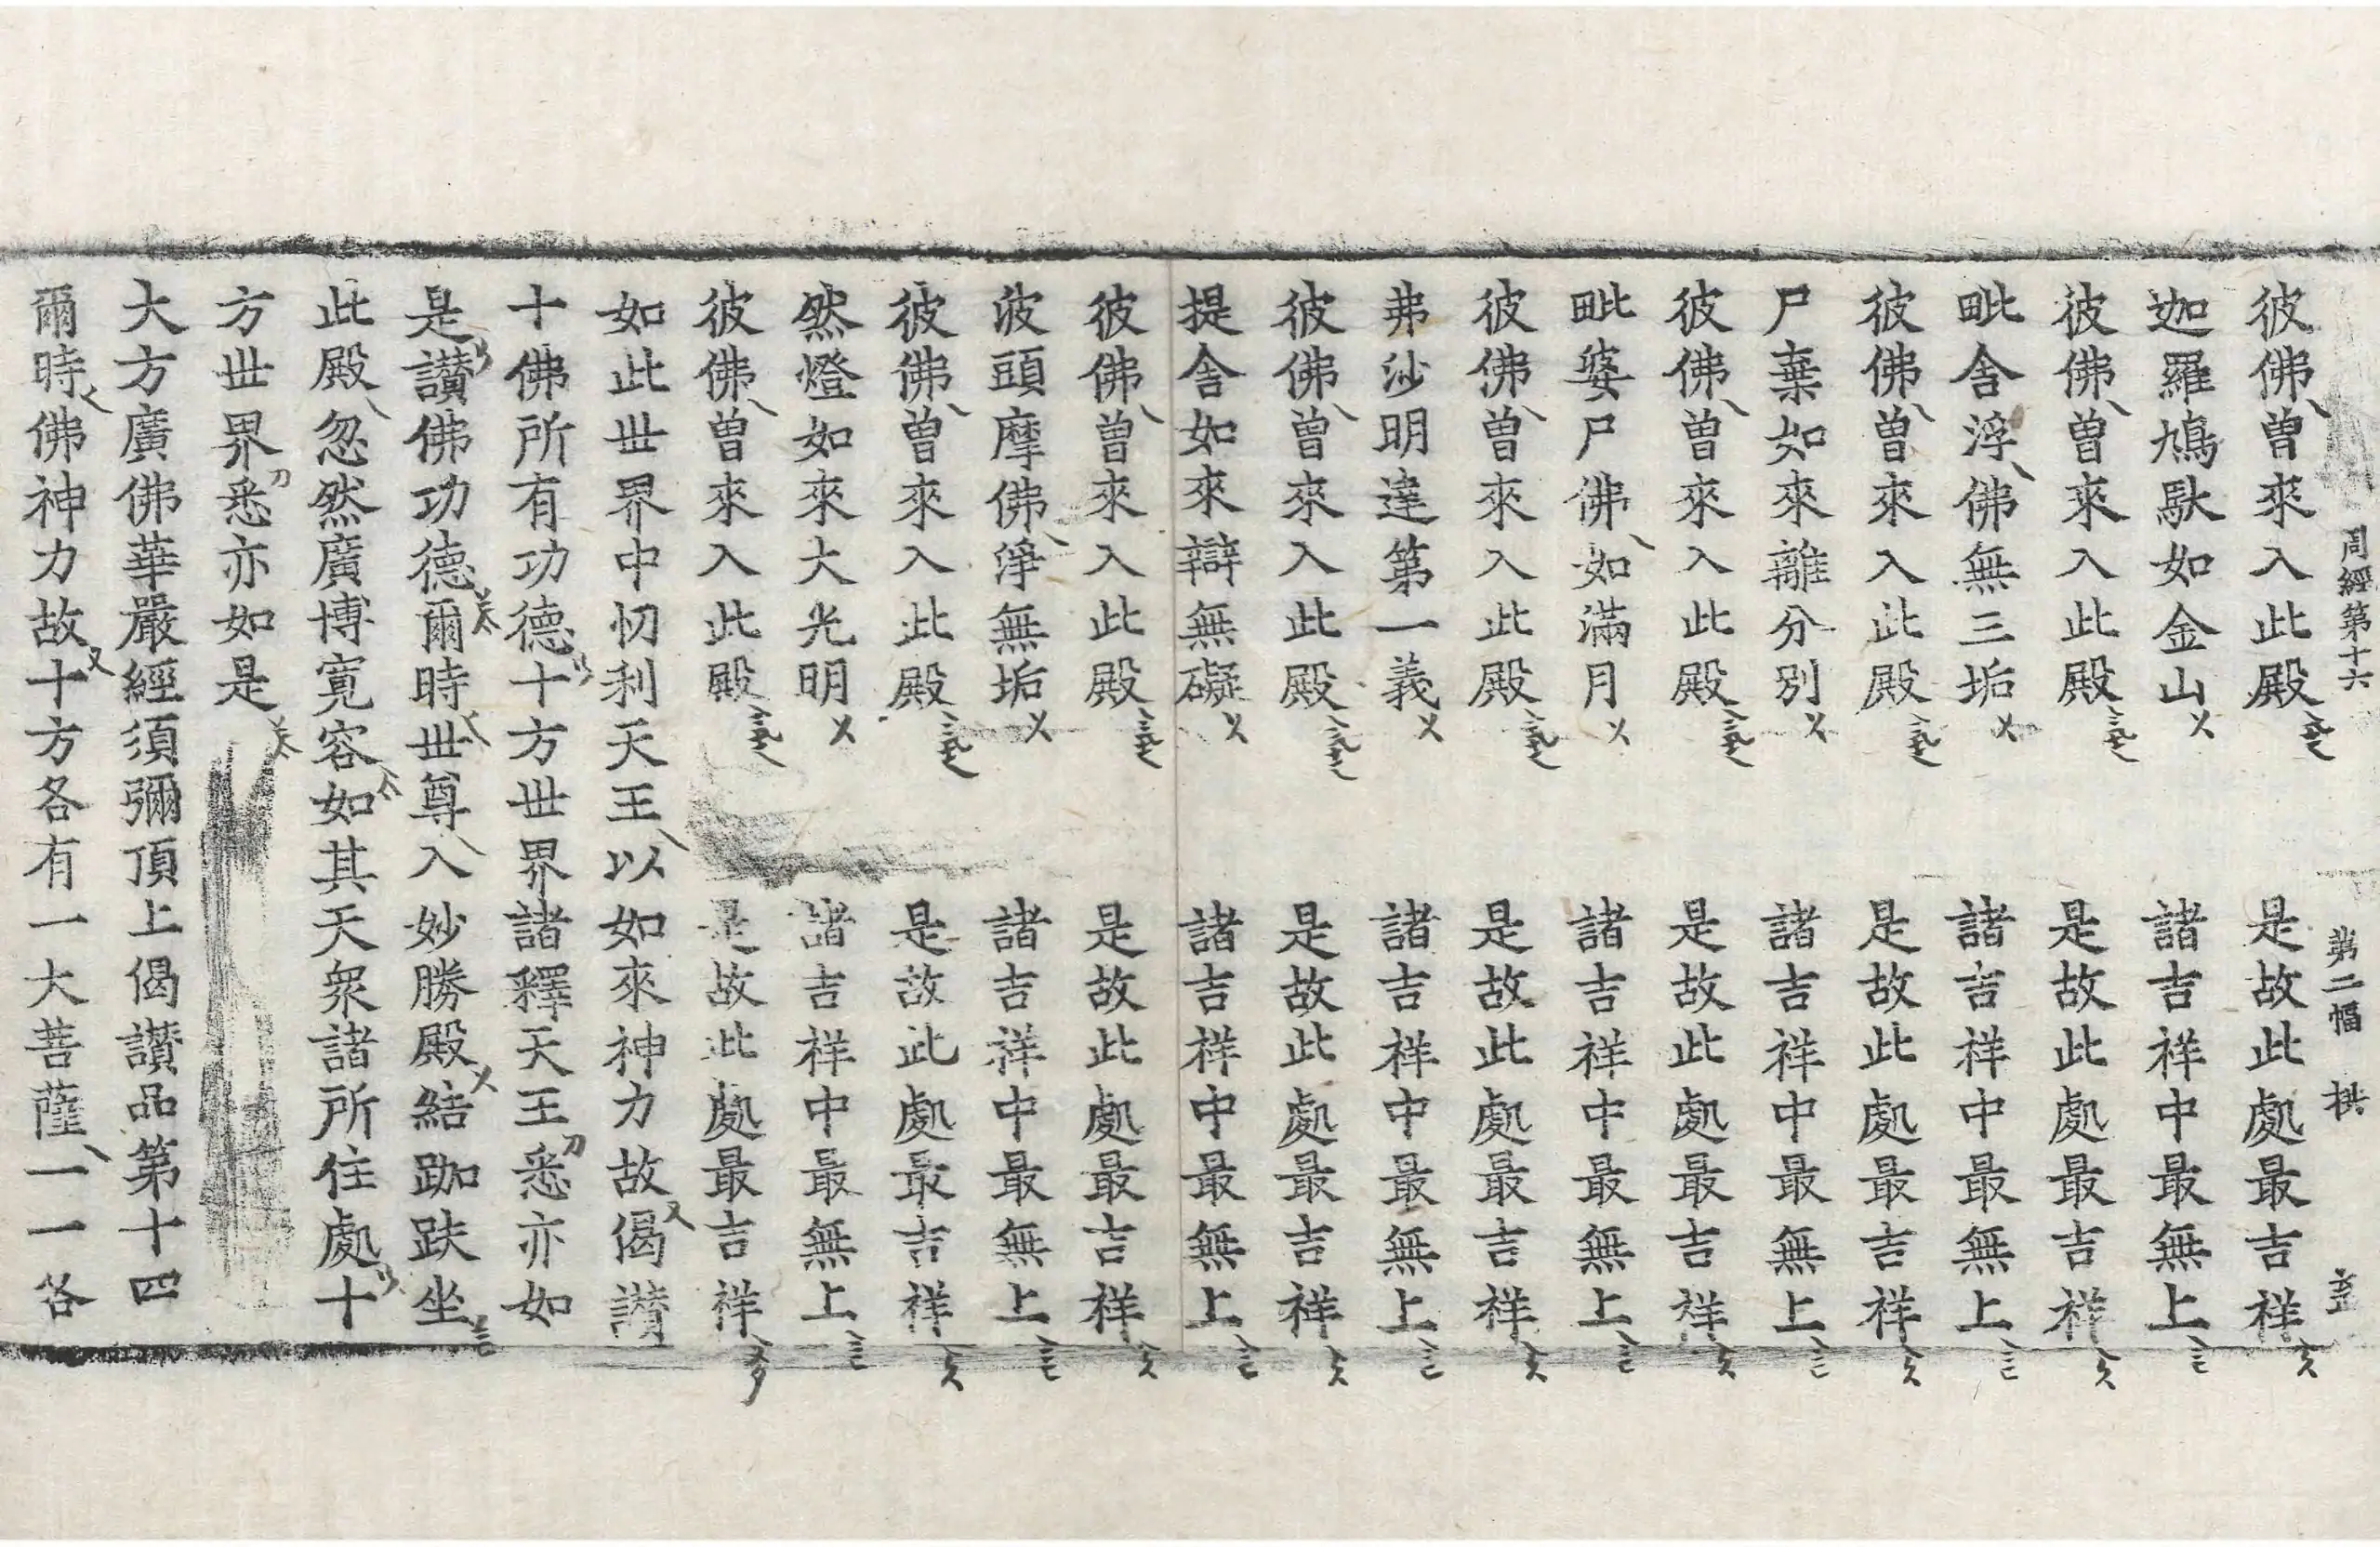 周經第十六 第二幅 拱
彼佛曾來入此殿 是故此處最吉祥
迦羅鳩馱如金山 諸吉祥中最無上
彼佛曾來入此殿 是故此處最吉祥
毗舍浮佛無三垢 諸吉祥中最無上
彼佛曾來入此殿 是故此處最吉祥
尸棄如來離分別 諸吉祥中最無上
彼佛曾來入此殿 是故此處最吉祥
毗婆尸佛如滿月 諸吉祥中最無上
彼佛曾來入此殿 是故此處最吉祥
弗沙明達第一義 諸吉祥中最無上
彼佛曾來入此殿 是故此處最吉祥
提舍如來辯無礙 諸吉祥中最無上
彼佛曾來入此殿 是故此處最吉祥
波頭摩佛淨無垢 諸吉祥中最無上
彼佛曾來入此殿 是故此處最吉祥
然燈如來大光明 諸吉祥中最無上
彼佛曾來入此殿 是故此處最吉祥
如此世界中忉利天王以如來神力故偈讚
十佛所有功德十方世界諸釋天王悉亦如
是讚佛功德爾時世尊入妙勝殿結跏趺坐
此殿忽然廣博寬容如其天衆諸所住處十
方世界悉亦如是
大方廣佛華嚴經須彌頂上偈讚品第十四
爾時佛神力故十方各有一大菩薩一一各